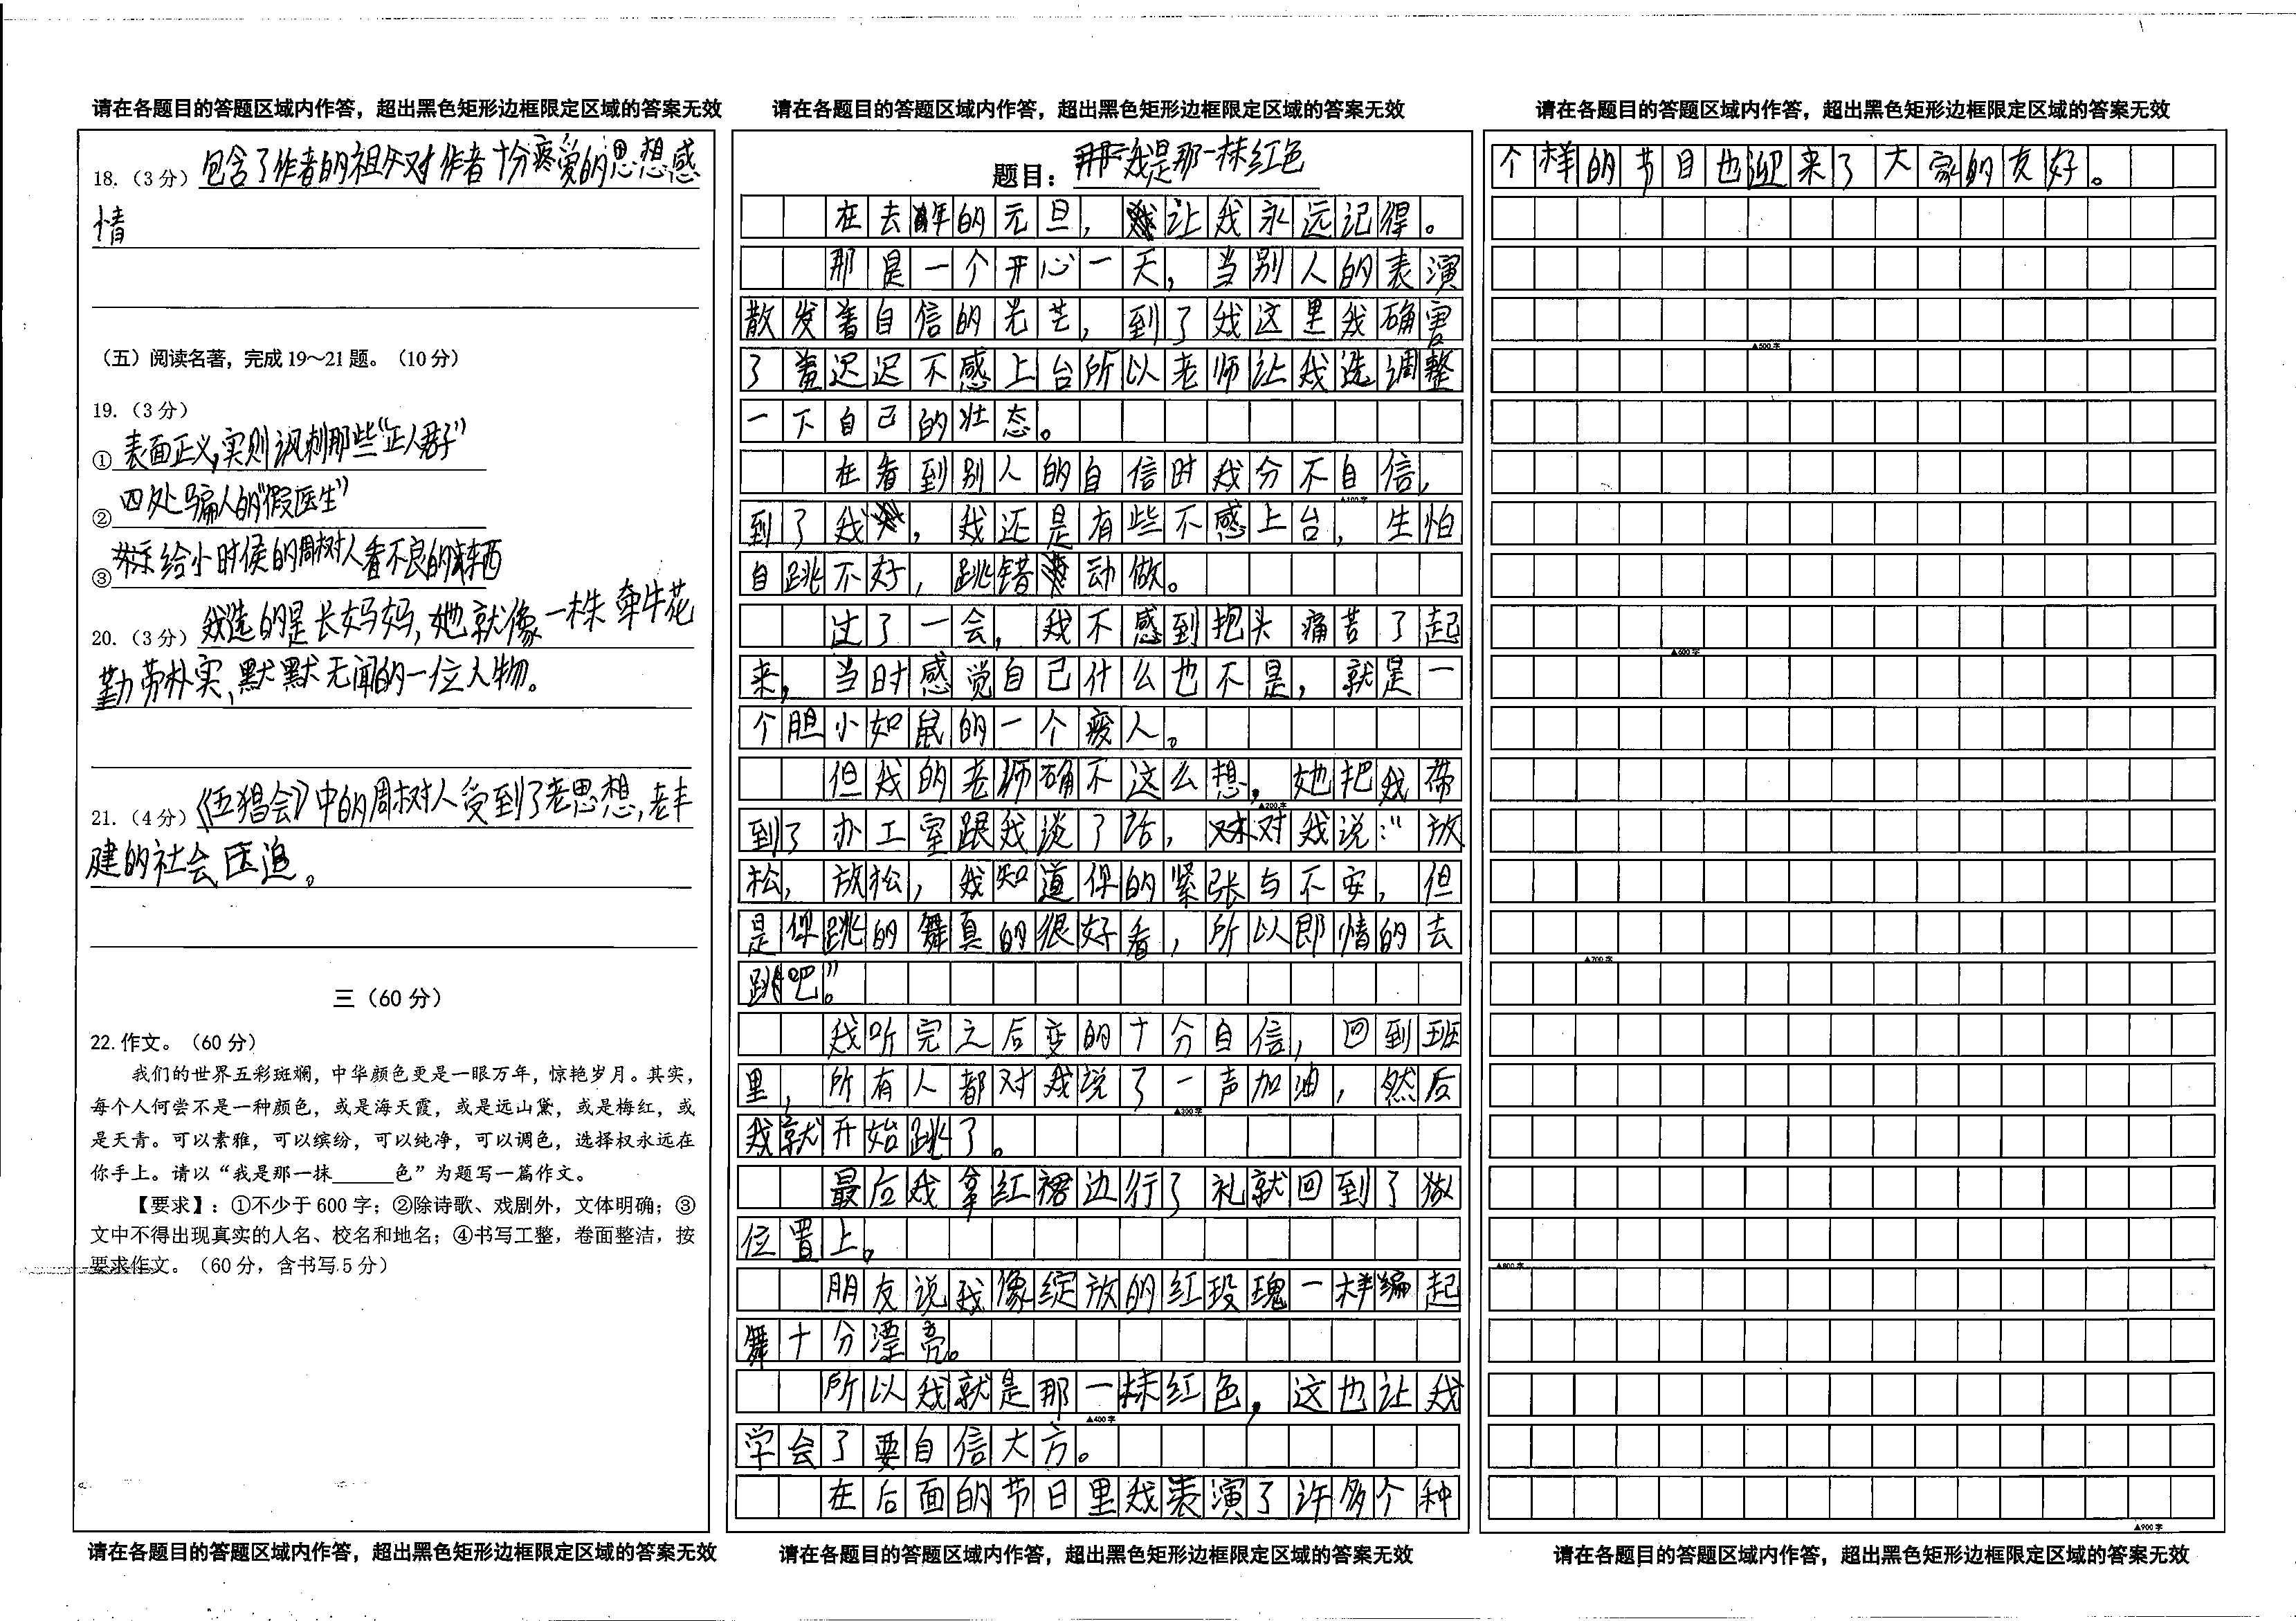 请在各题目的答题区域内作答，超出黑色矩形边框限定区域的答案无效
18.（3分）包含了作者的祖父对作者十分疼爱的思想感
情
（五）阅读名著，完成19～21题。（10分）
19.（3分）
①表面正义，实则讽刺那些“正人君子”
②四处骗人的“假医生”
③给小时侯的周树人看不良的东西
20.（3分）我选的是长妈妈，她就像一株牵牛花
勤劳朴实，默默无闻的一位人物。
21.（4分）《五猖会》中的周树人受到了老思想，老丰
建的社会压迫。
三（60分）
22.作文。（60分）
我们的世界五彩斑斓，中华颜色更是一眼万年，惊艳岁月。其实，
每个人何尝不是一种颜色，或是海天霞，或是远山黛，或是梅红，或
是天青。可以素雅，可以缤纷，可以纯净，可以调色，选择权永远在
你手上。请以“我是那一抹______色”为题写一篇作文。
【要求】：①不少于600字；②除诗歌、戏剧外，文体明确；③
文中不得出现真实的人名、校名和地名；④书写工整，卷面整洁，按
要求作文。（60分，含书写5分）
请在各题目的答题区域内作答，超出黑色矩形边框限定区域的答案无效
请在各题目的答题区域内作答，超出黑色矩形边框限定区域的答案无效
题目：我是那一抹红色
在去年的元旦，让我永远记得。
那是一个开心一天，当别人的表演
散发着自信的光芒，到了我这里我确害
了羞迟迟不感上台所以老师让我选调整
一下自己的壮态。
在看到别人的自信时我分不自信，
▲100字
到了我，我还是有些不感上台，生怕
自跳不好，跳错动做。
过了一会，我不感到抱头痛苦了起
▲200字
来，当时感觉自己什么也不是，就是一
个胆小如鼠的一个废人。
但我的老师确不这么想，她把我带
到了办工室跟我谈了话，对我说：“放
松，放松，我知道你的紧张与不安，但
是你跳的舞真的很好看，所以即情的去
跳吧。”
我听完之后变的十分自信，回到班
里，所有人都对我说了一声加油，然后
▲300字
我就开始跳了。
最后我拿红裙边行了礼就回到了做
位置上。
朋友说我像绽放的红玫瑰一样编起
舞十分漂亮。
所以我就是那一抹红色，这也让我
▲400字
学会了要自信大方。
在后面的节日里我表演了许多个种
请在各题目的答题区域内作答，超出黑色矩形边框限定区域的答案无效
请在各题目的答题区域内作答，超出黑色矩形边框限定区域的答案无效
个样的节目也迎来了大家的友好。
▲500字
▲600字
▲700字
▲800字
▲900字
请在各题目的答题区域内作答，超出黑色矩形边框限定区域的答案无效